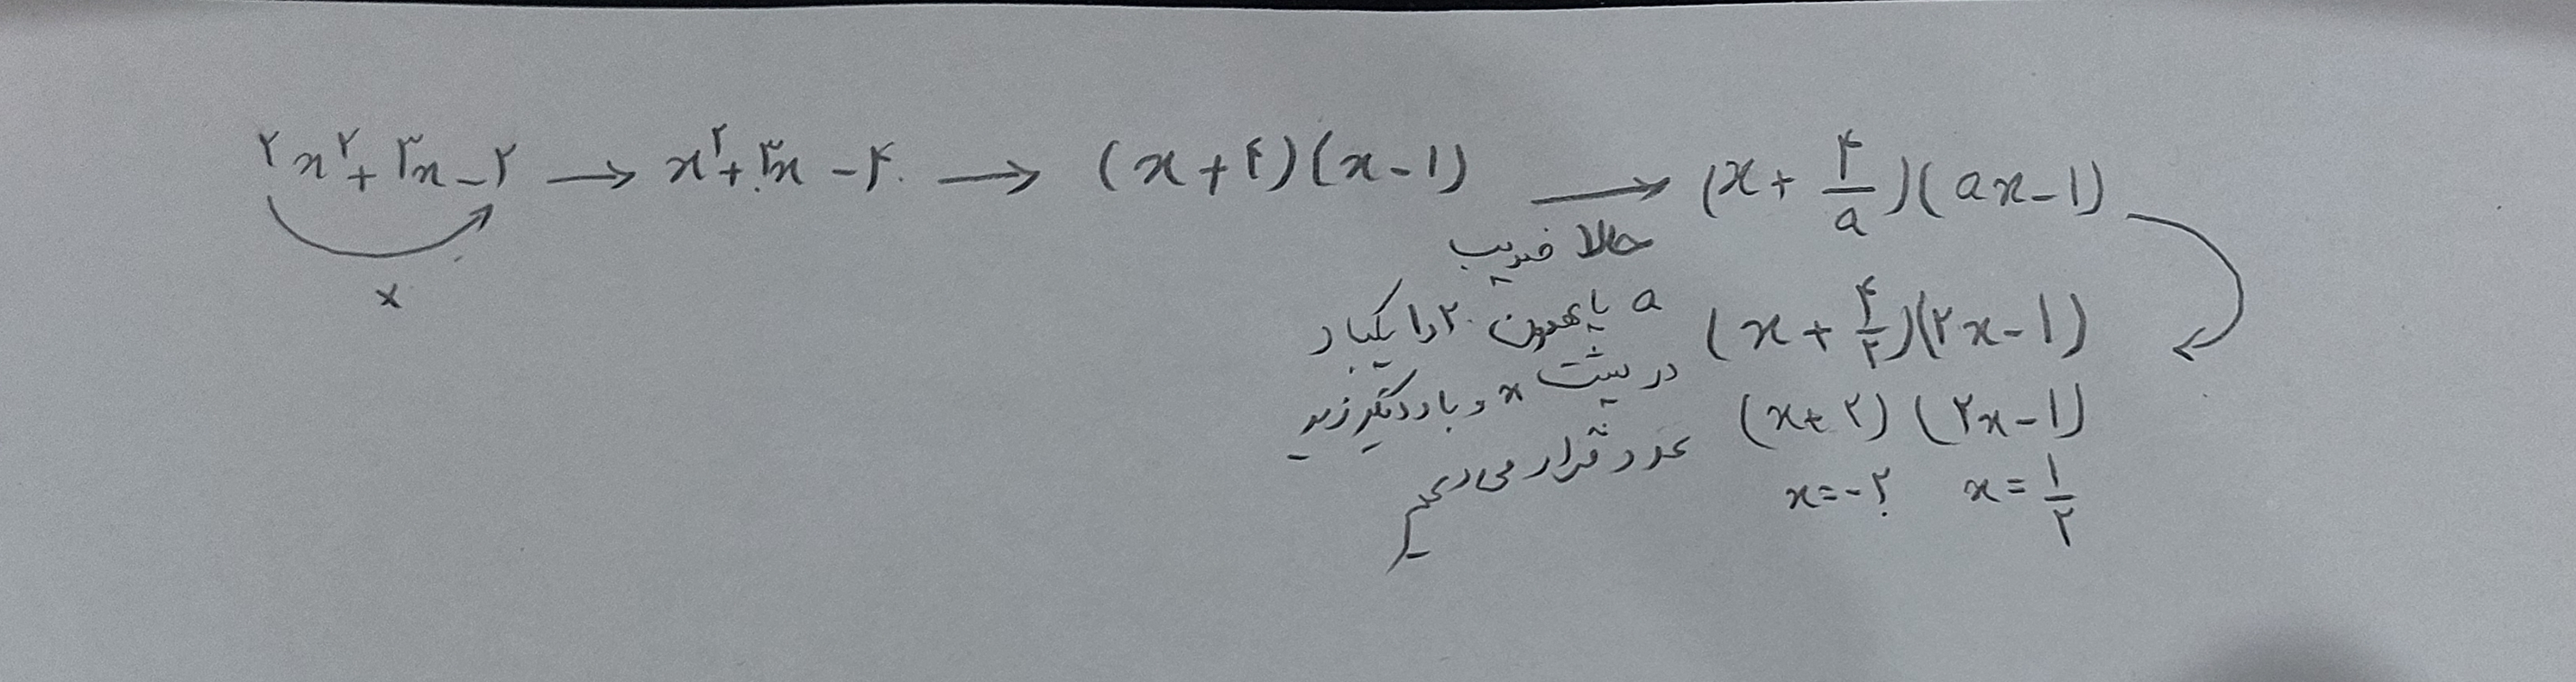 ۲x^۲ + ۳x - ۲ → x^۲ + ۳x - ۴ → (x + ۴)(x - ۱) → (x + ۴/a)(ax - ۱)
×
حالا ضریب
a یا همون ۲ را یکبار
در پشت x و بار دیگر زیر
عدد قرار می‌دهیم
(x + ۴/۲)(۲x - ۱)
(x + ۲)(۲x - ۱)
x = -۲ x = ۱/۲